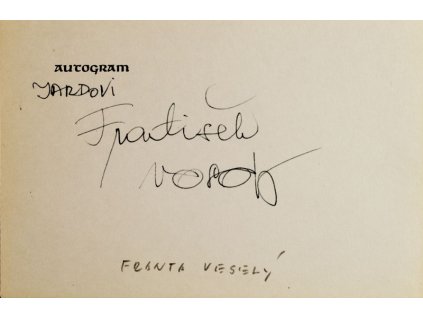 AUTOGRAM
JARDOVI
František
FRANTA VESELÝ